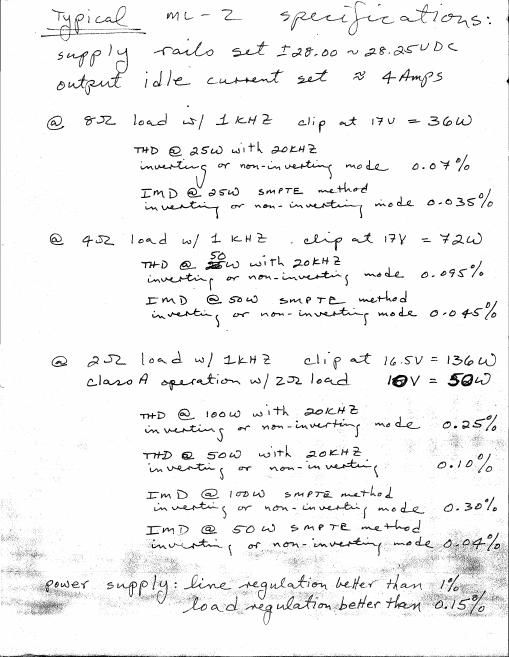 Typical ML-2 specifications:
supply rails set ±28.00 ~ 28.25VDC
output idle current set ≈ 4 Amps
@ 8Ω load w/ 1KHZ clip at 17V = 36W
THD @ 25W with 20KHZ
inverting or non-inverting mode 0.07%
IMD @ 25W SMPTE method
inverting or non-inverting mode 0.035%
@ 4Ω load w/ 1KHZ clip at 17V = 72W
THD @ 50W with 20KHZ
inverting or non-inverting mode 0.095%
IMD @ 50W SMPTE method
inverting or non-inverting mode 0.045%
@ 2Ω load w/ 1KHZ clip at 16.5V = 136W
class A operation w/ 2Ω load 10V = 50W
THD @ 100W with 20KHZ
inverting or non-inverting mode 0.25%
THD @ 50W with 20KHZ
inverting or non-inverting 0.10%
IMD @ 100W SMPTE method
inverting or non-inverting mode 0.30%
IMD @ 50W SMPTE method
inverting or non-inverting mode 0.04%
power supply: line regulation better than 1%
load regulation better than 0.15%